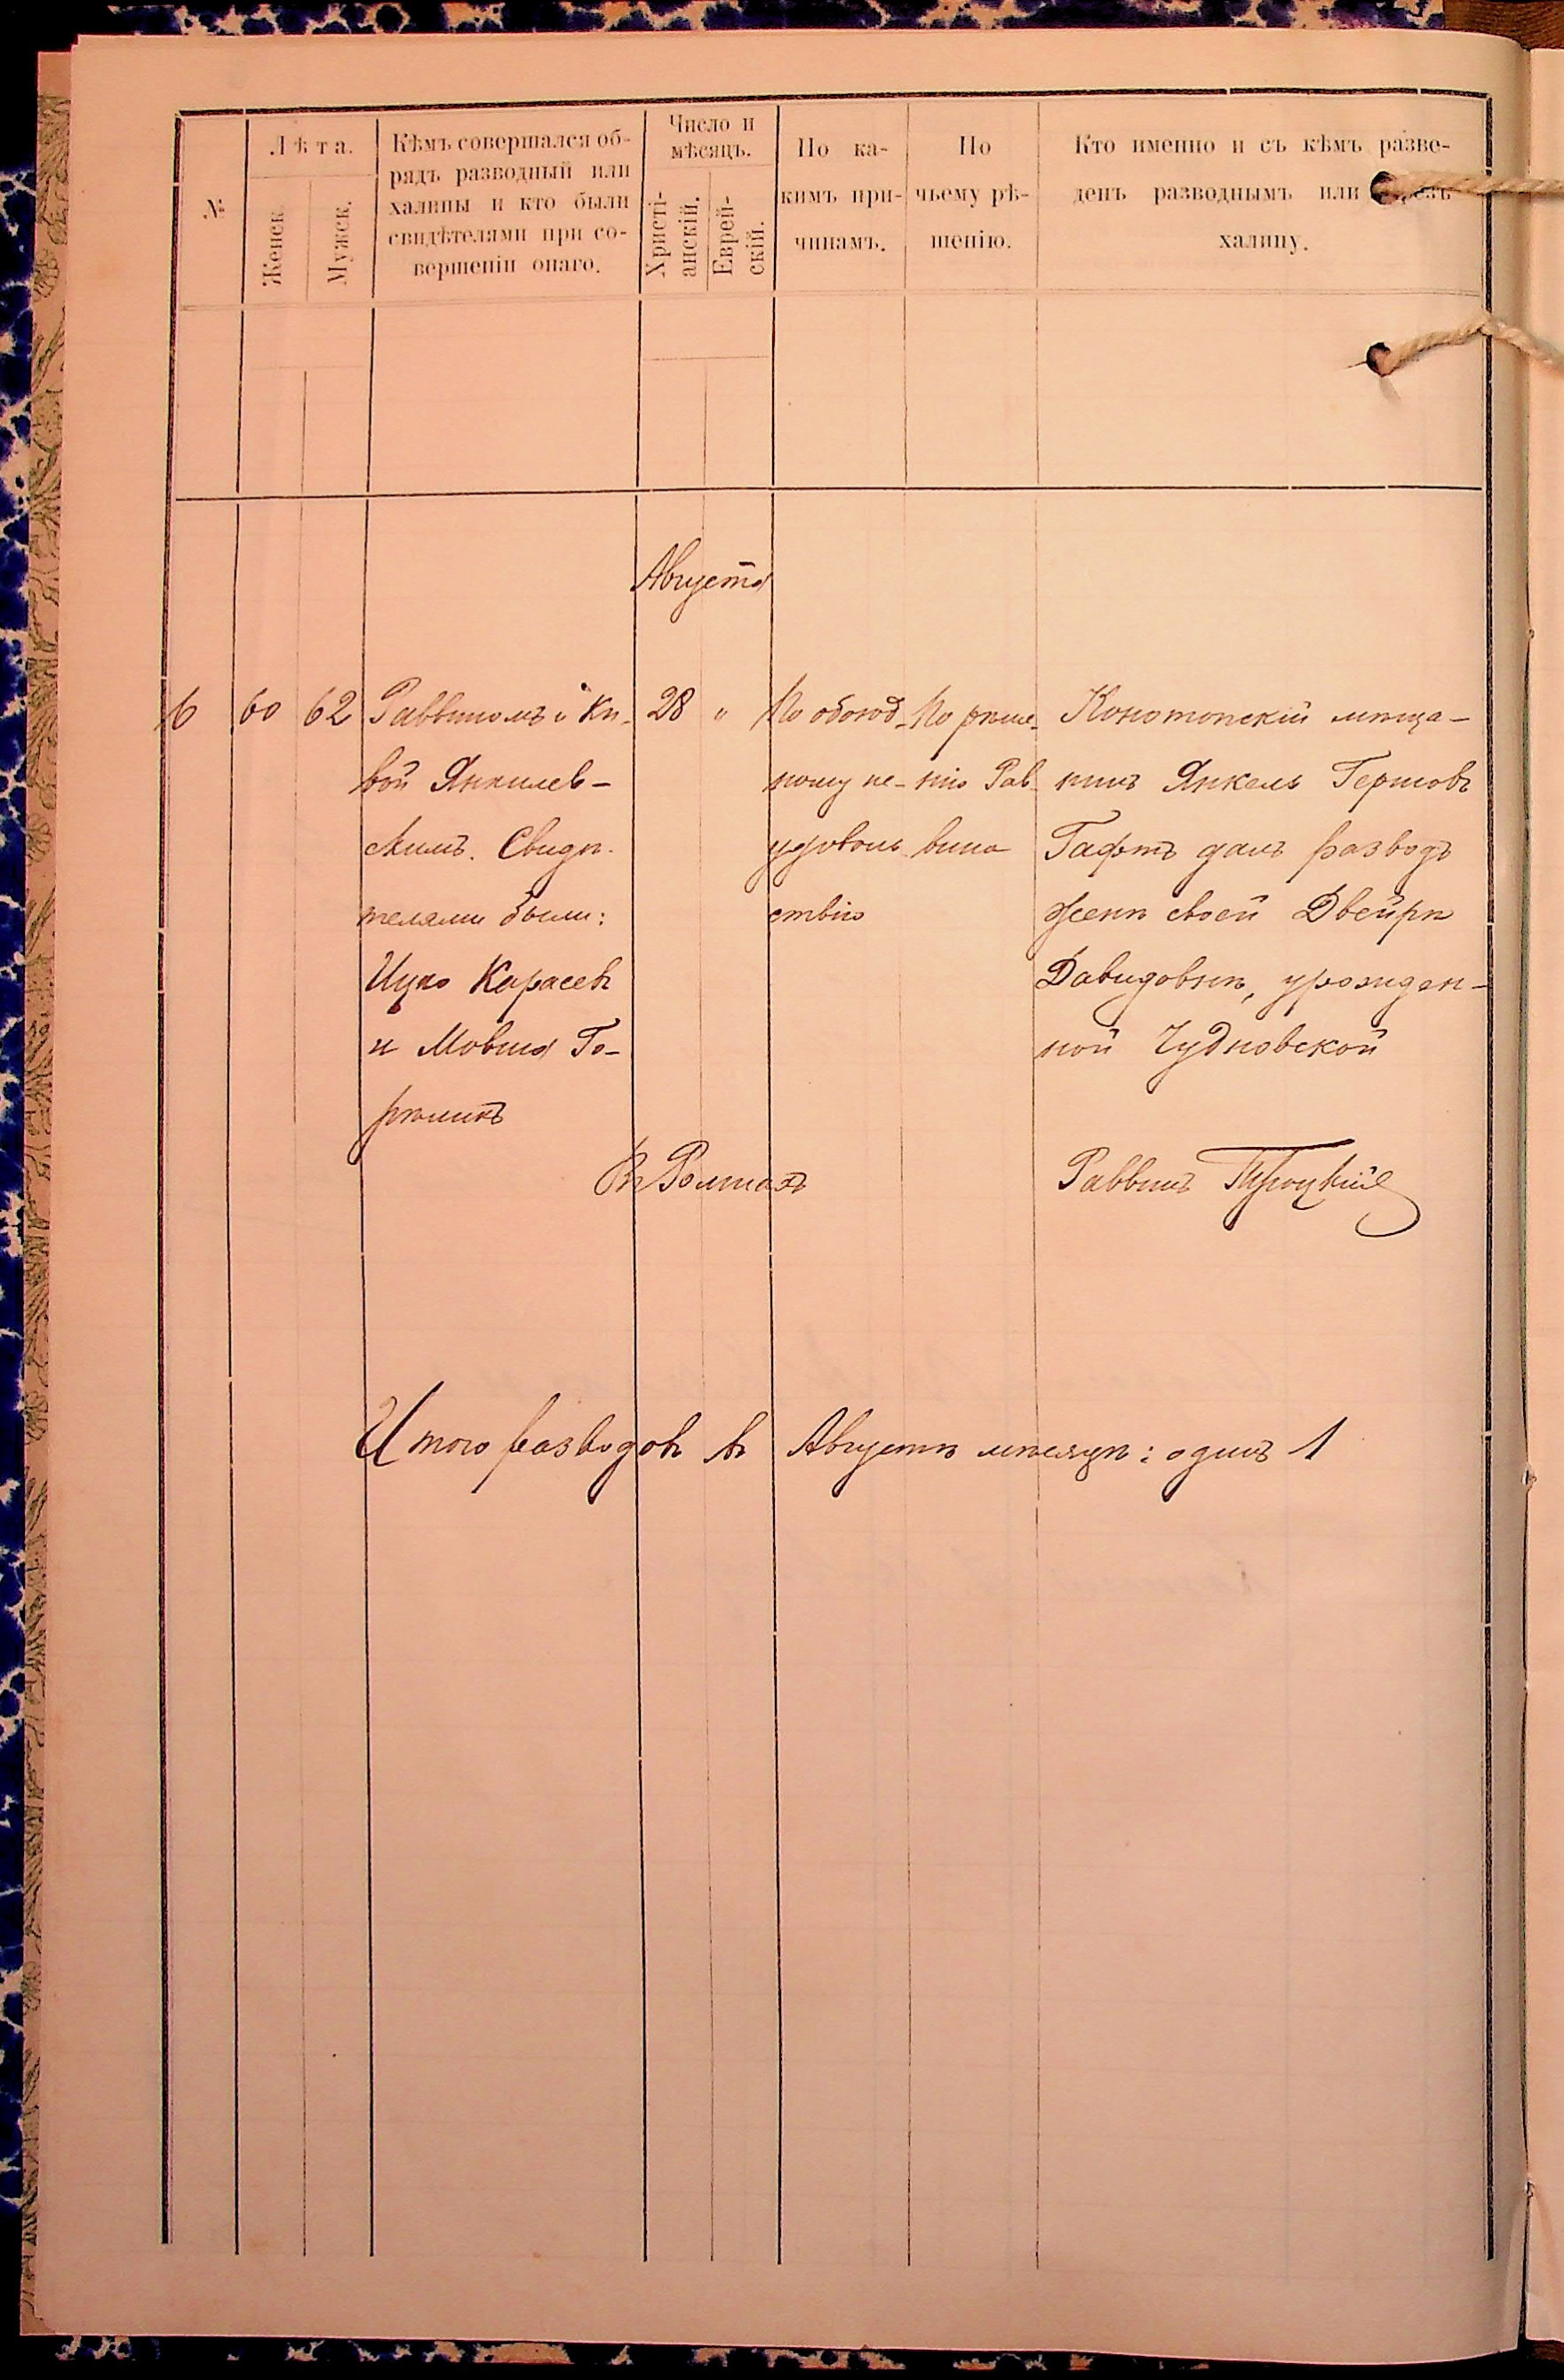 №
Лѣта.
Женск.
Мужск.
Кѣмъ совершался об-
рядъ разводный или
халицы и кто были
свидѣтелями при со-
вершеніи онаго.
Число и
мѣсяцъ.
Христі-
анскій.
Еврей-
скій.
По ка-
кимъ при-
чинамъ.
По
чьему рѣ-
шенію.
Кто именно и съ кѣмъ разве-
денъ разводнымъ или
халицу.
Августа
6
60
62
Раввиномъ
вой Янкилев-
скимъ. Свидѣ-
телями были:
Ицко Карасевъ
и Мовша Го-
рѣликъ
28 "
По обоюд-
ному не-
удоволь-
ствію
По рѣше-
нію Рав-
вина
Конотопскій мѣща-
нинъ Янкель Гершовъ
Гафтъ далъ разводъ
женѣ своей Двейрѣ
Давидовнѣ, урожден-
ной Чудновской
въ Ромнахъ
Раввинъ Троцкій
Итого разводовъ въ Августѣ мѣсяцѣ: одинъ 1